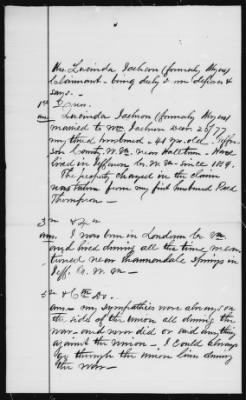 Mrs. Lucinda Jackson (formerly Myers)
Claimant - being duly s-on deposes &
says. -
1st Ques.
ans Lucinda Jackson (formerly Myers)
married to Wm Jackson Nov. 26/77
my third husband. - 44 yrs. old - Jefferson
County W. Va. near Halltown - Have
lived in Jefferson Co. W. Va - since 1859.
The property charged in the claim
was taken from my first husband Reed
Thompson -
3rd &
ans. I was born in Loudon Co. Va
and lived during all the time men-
tioned near Shannondale Springs in
Jeff. Co. W. Va -
5th & 6th Do. -
ans - my sympathies were always on
the side of the Union all during the
war - and never did or said anything
against the Union. - I could always
go through the union lines during
the war -